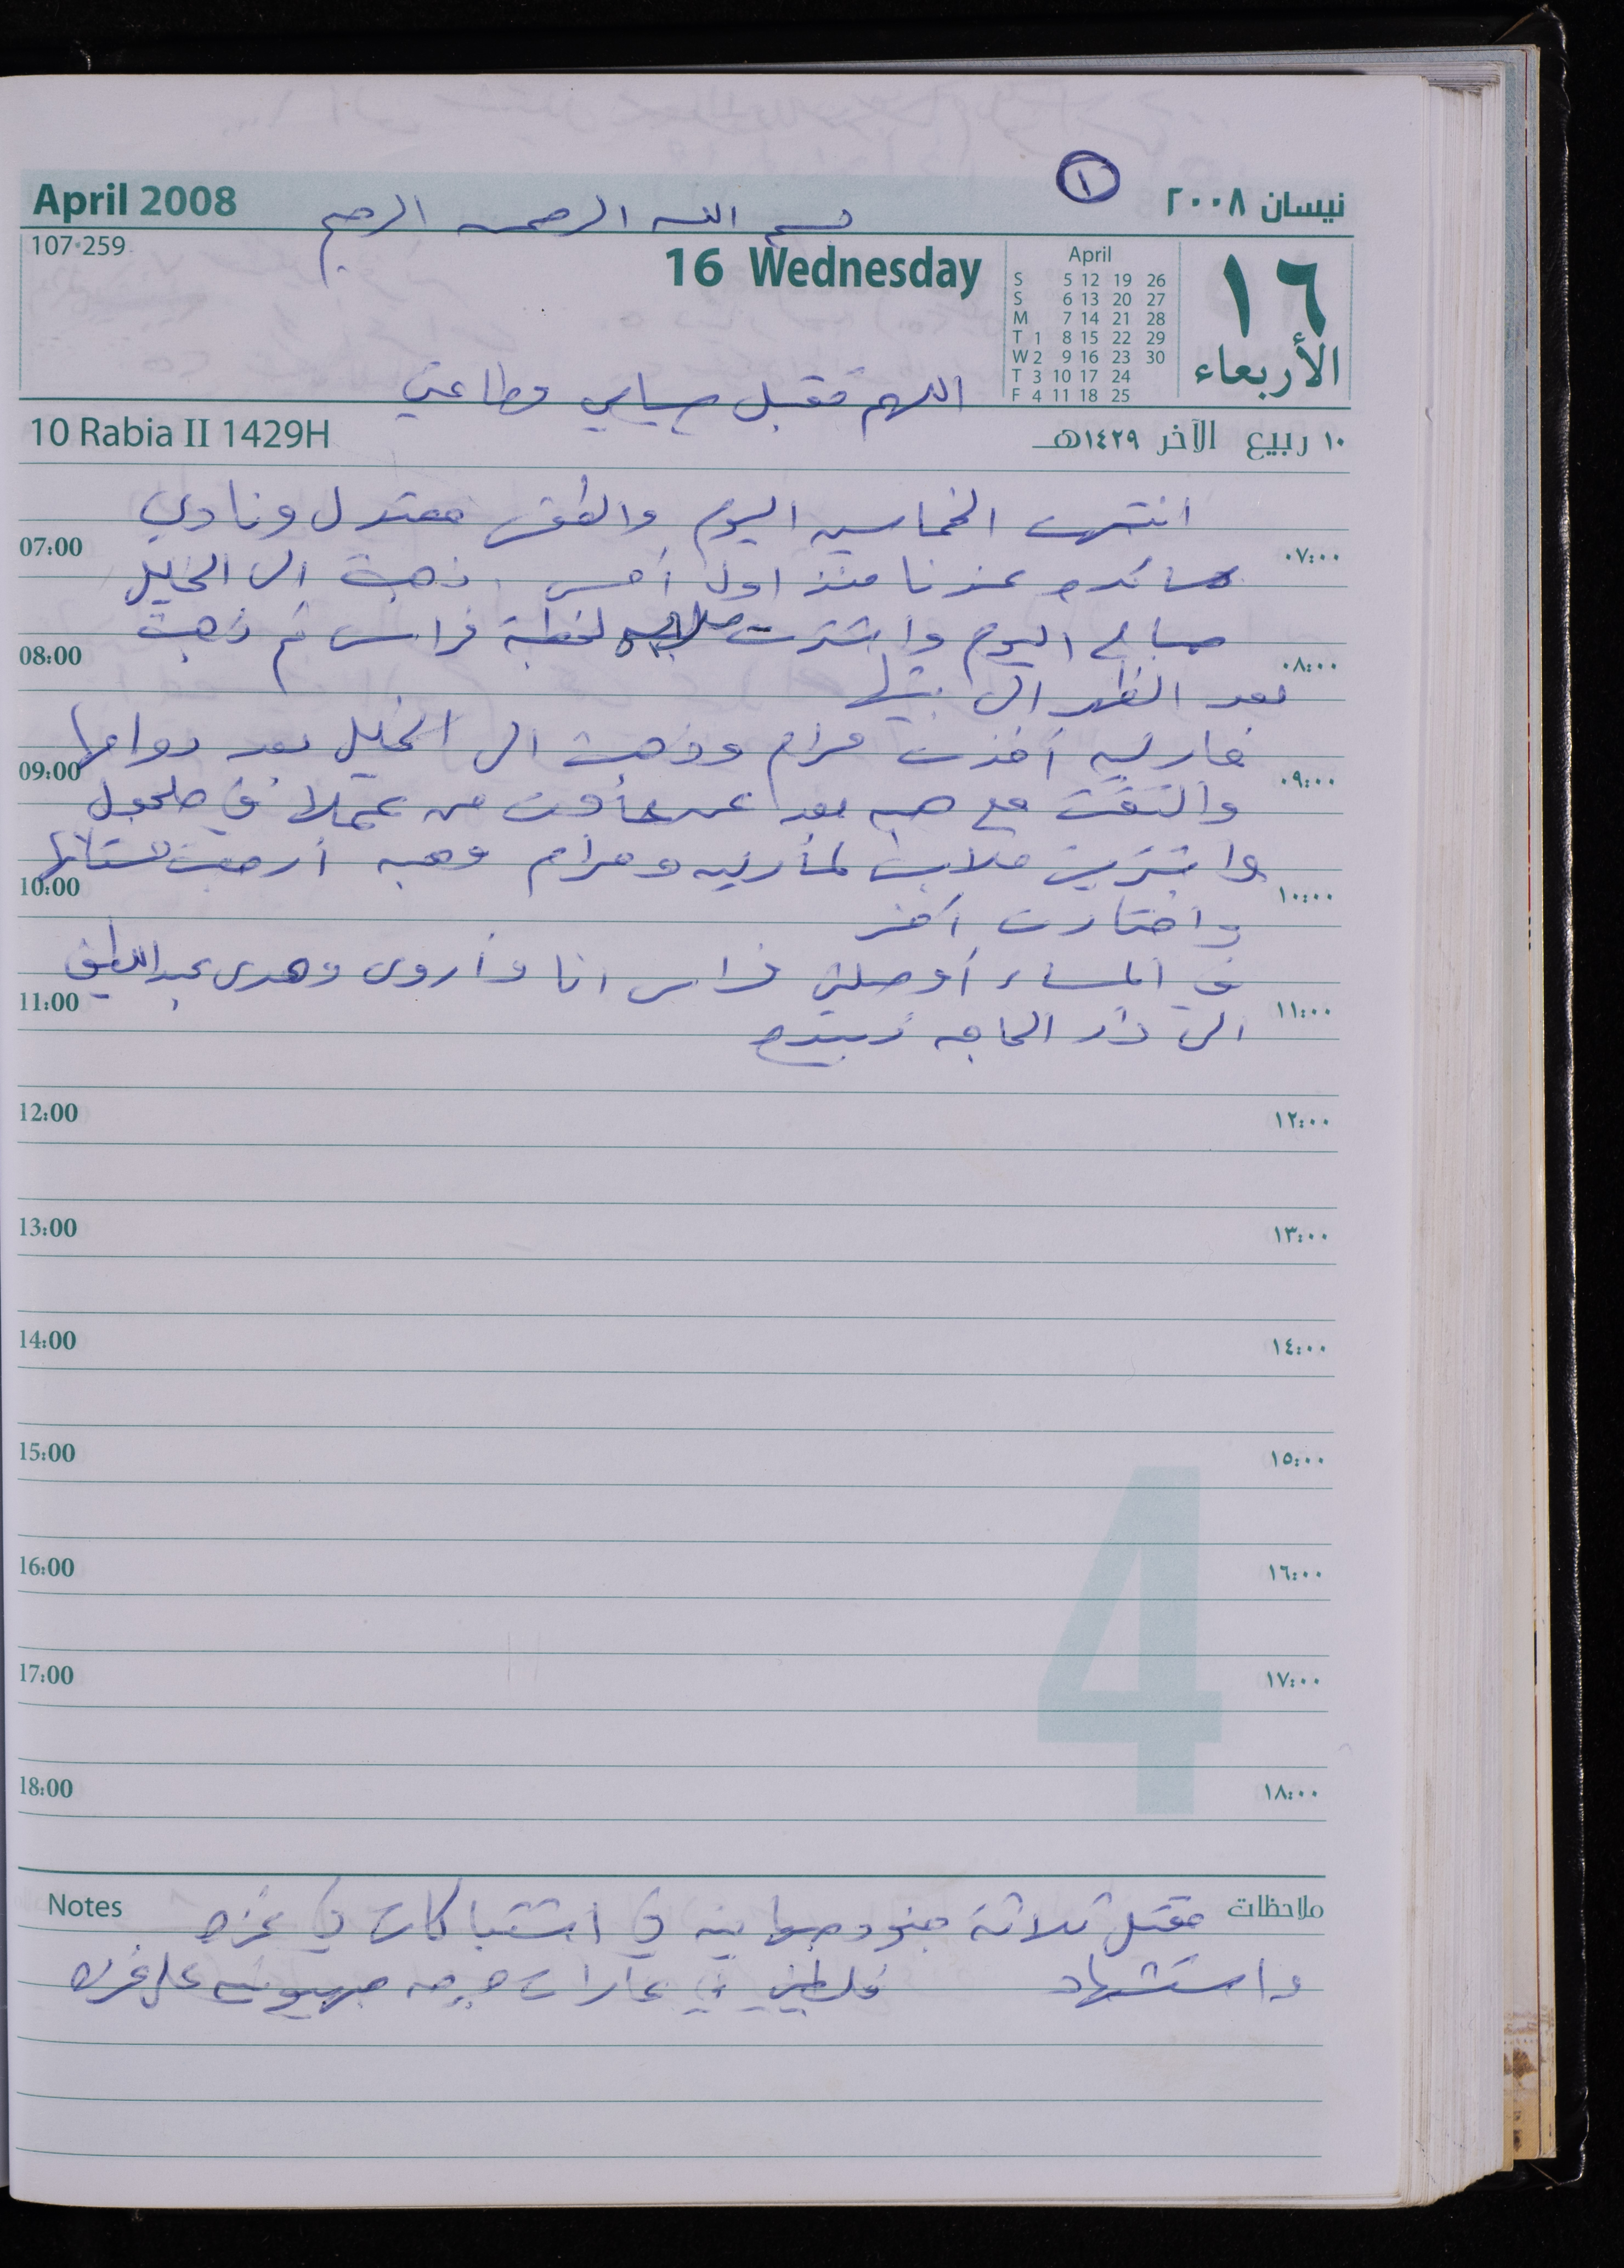 ١
April 2008
نيسان ٢٠٠٨
بسم الله الرحمن الرحيم
107-259
16 Wednesday
April
S 5 12 19 26
S 6 13 20 27
M 7 14 21 28
T 1 8 15 22 29
W 2 9 16 23 30
T 3 10 17 24
F 4 11 18 25
١٦
الأربعاء
اللهم تقبل صيامي وطاعتي
10 Rabia II 1429H
١٠ ربيع الآخر ١٤٢٩هـ
انتهت الخماسين اليوم والطقس معتدل ونادي
07:00 ٠٧:٠٠
عندنا منذ اول أمس ذهبت الى الخليل
صباح اليوم واشترت ملابس لخطبة فراس ثم ذهبت
08:00 ٠٨:٠٠
بعد الظهر الى بيتها
مارلين أخذت مرام وذهبت الى الخليل بعد دوامها
09:00 ٠٩:٠٠
والتقت مع هبه بعد عادت من عملها في حلحول
واشترين ملابس لمارلين ومرام وهبه أرجعت
10:00 ١٠:٠٠
واختارت آخر
في المساء أوصلني فراس انا وأروى وهدى عبد اللطيف
11:00 ١١:٠٠
الى دار الحاجه زبيده
12:00 ١٢:٠٠
13:00 ١٣:٠٠
14:00 ١٤:٠٠
15:00 ١٥:٠٠
4
16:00 ١٦:٠٠
17:00 ١٧:٠٠
18:00 ١٨:٠٠
Notes ملاحظات
مقتل ثلاثة جنود صهاينه في اشتباكات في غزه
واستشهاد فلسطيني في غارات صهيونيه على غزه